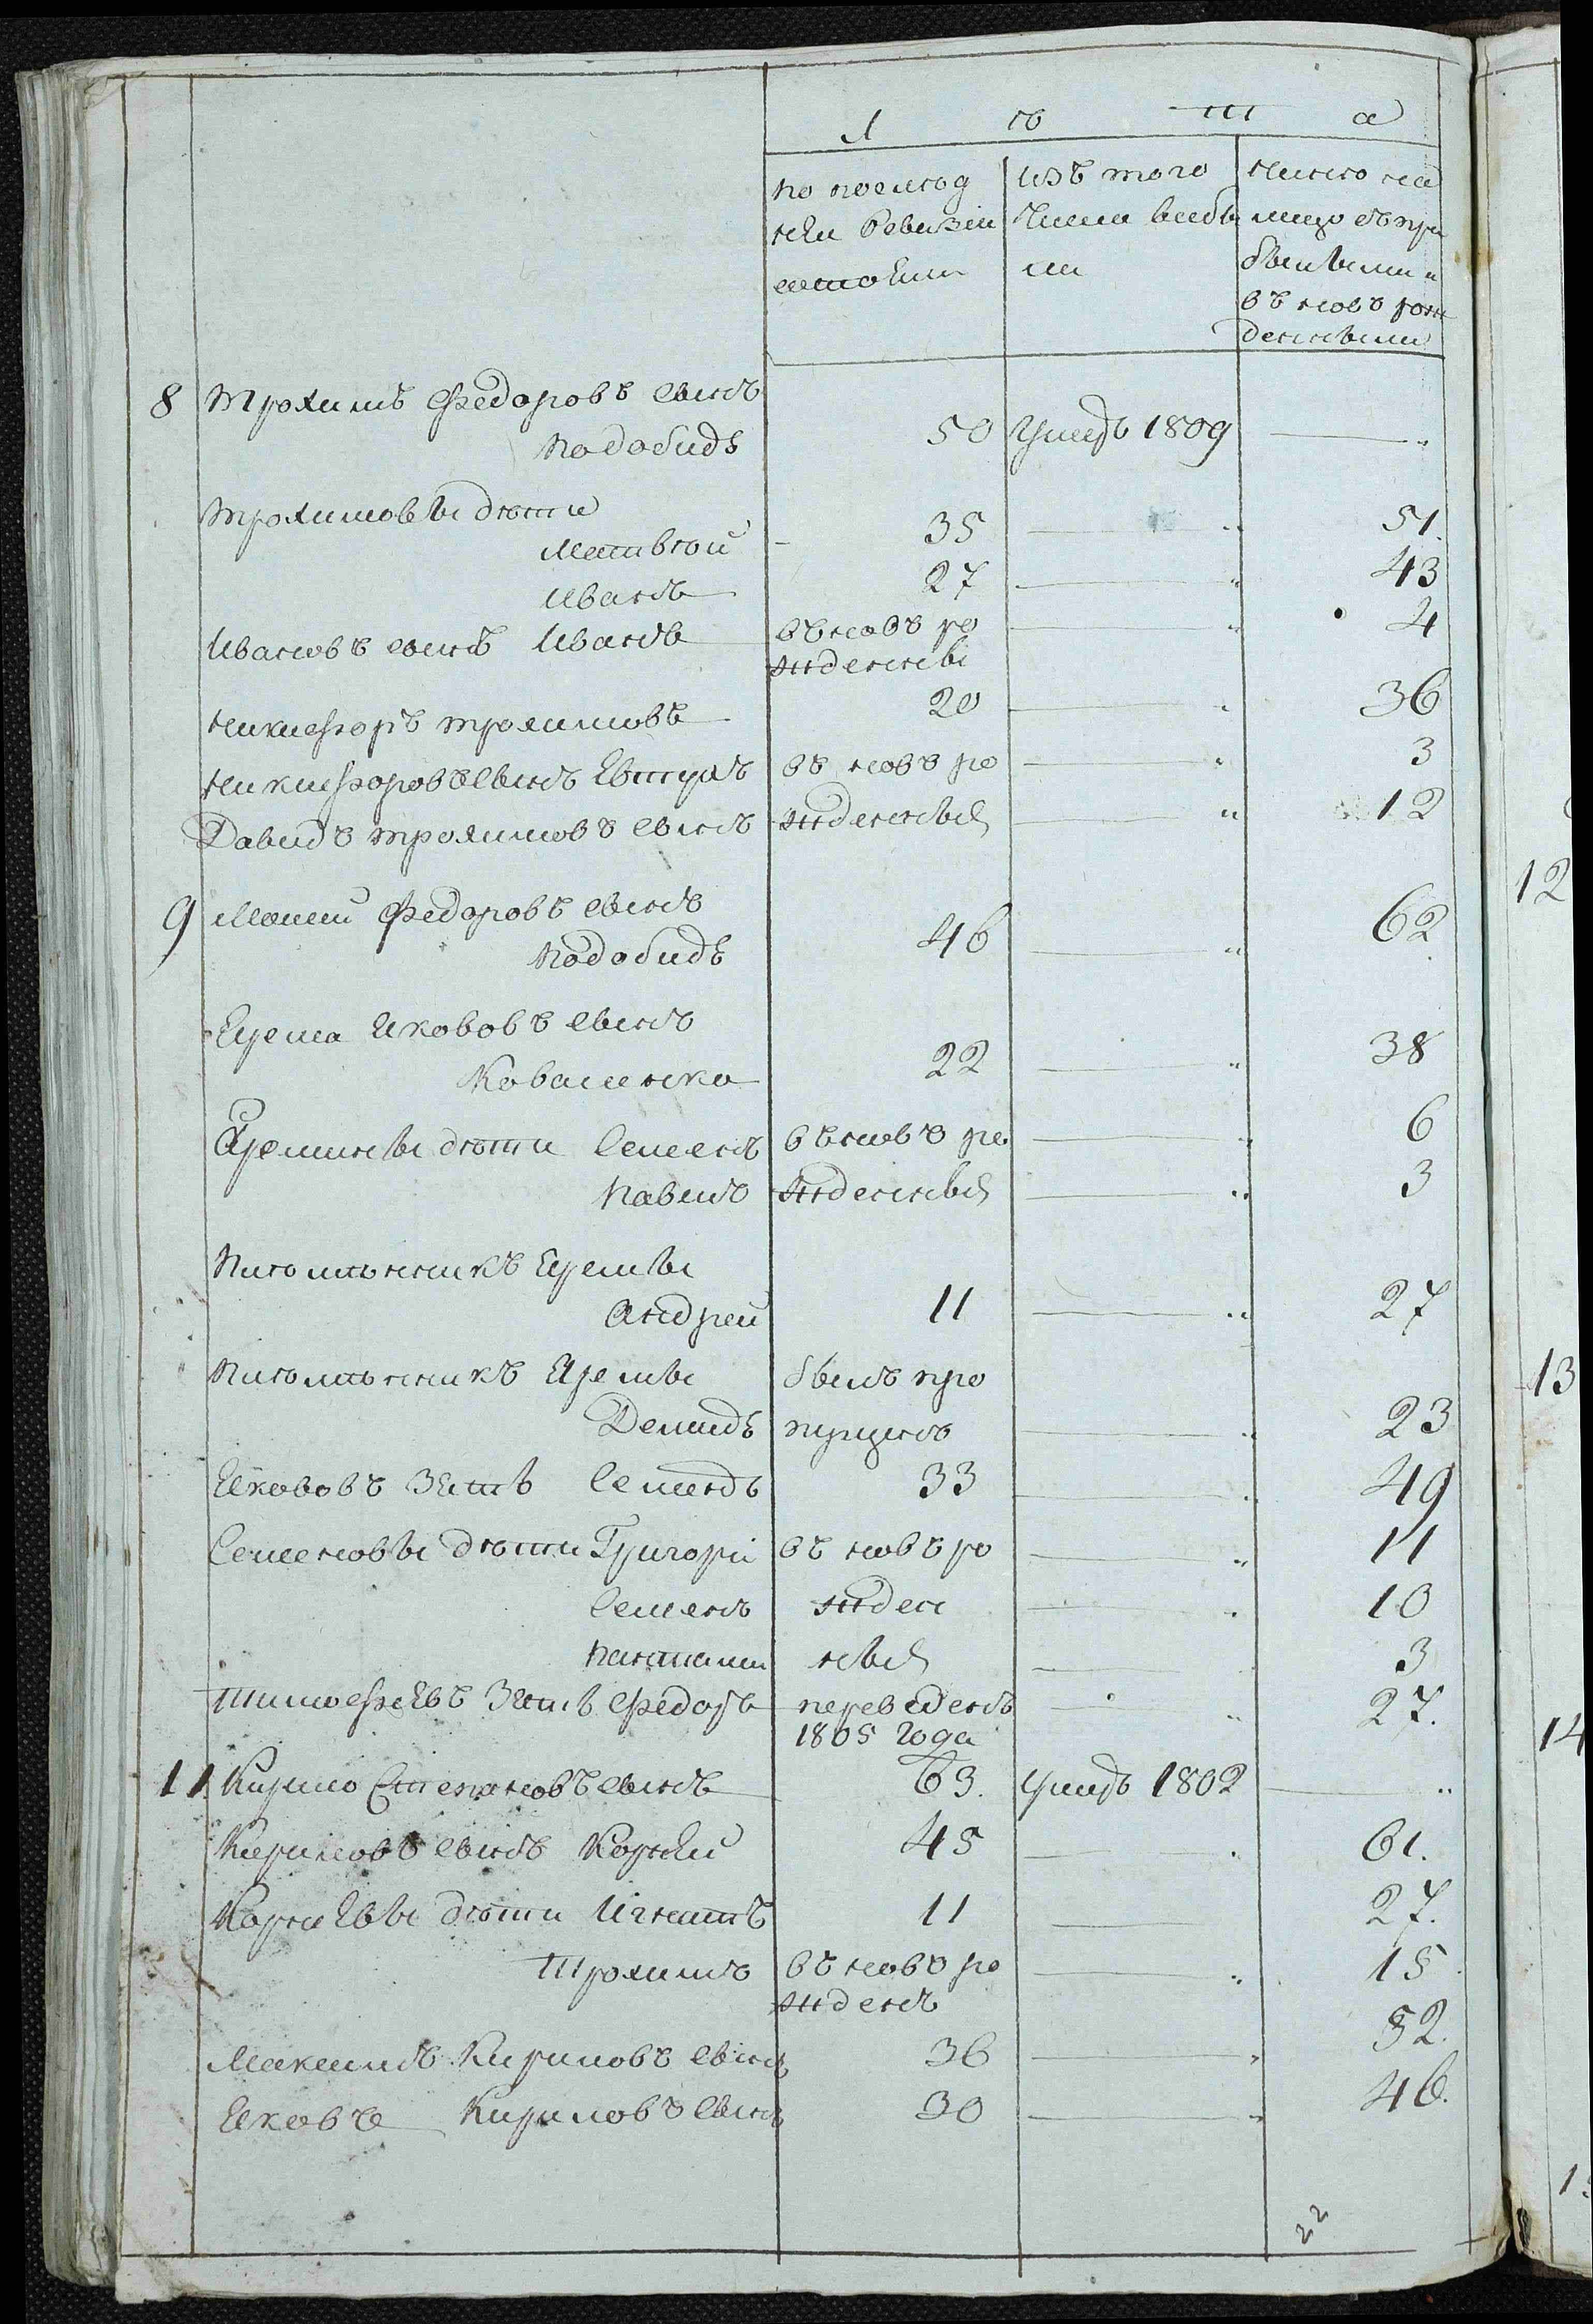 Л ѣ т а
по послѣд
ней Ревизіи
состояли
изъ того
числа выбы
ли
ныне на
лицо съ при
бывшими и
въ новъ рож
денными
8 Трохимъ Федоровъ сынъ
Подобидъ 50 Умеръ 1809 — "
Трохимовы дѣти
Матвѣй 35 — " 51.
Иванъ 27 — " 43
Ивановъ сынъ Иванъ въновъ ро — " 4
жденны
Никифоръ Трохимовъ 20 — " 36
Никифоровъ сынъ Евтухъ въ новъ ро — " 3
Давидъ Трохимовъ сынъ жденныя — " 12
9 Мосий Федоровъ сынъ
Подобидъ 46 — " 62
Ерема Якововъ сынъ
Коваленко 22 — " 38
Ереминны дѣти Семенъ въновъ ро — " 6
Павелъ жденныя — " 3
Племѣнникъ Еремы
Андрей 11 — " 27
Племѣнникъ Еремы былъ про
Демидъ пущенъ — " 23
Якововъ Зять Семенъ 33 — " 49
Семеновы дѣти Григори въ новъ ро — " 11
Семенъ жден — " 10
ныя — 3
Тимофѣевъ Зять Федоръ переведенъ — " 27.
1805 года
11. Кирило Степановъ сынъ 63. умеръ 1802 — "
Кириловъ сынъ Корнѣй 45 — " 61.
Корнѣевы дѣти Игнатъ 11 — 27.
Трохимъ въ новъ ро — " 15
жденъ
Максимъ Кириловъ сынъ 36 — " 52.
Яковъ Кириловъ сынъ 30 — " 46.
22
12
13
14